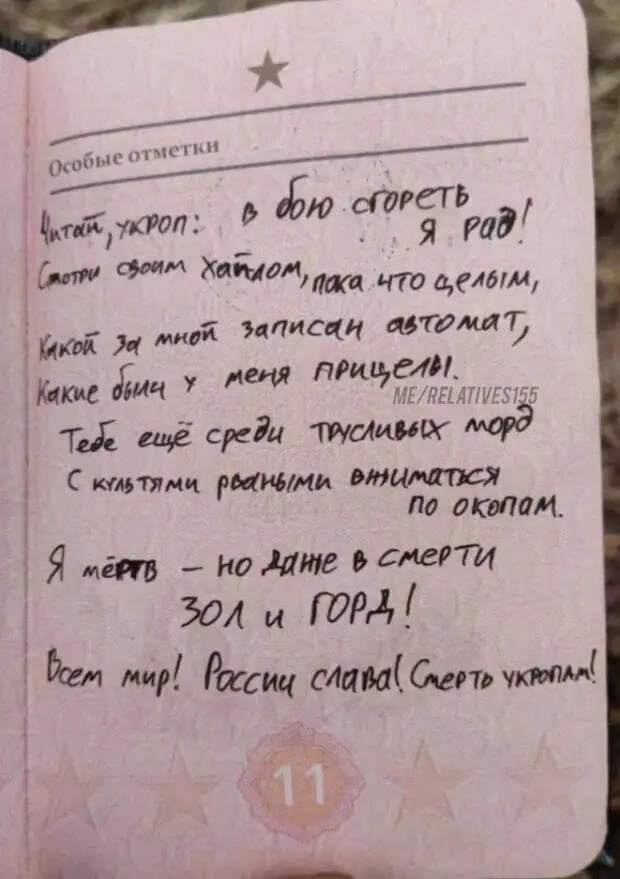 Особые отметки
Читай, укроп: в бою сгореть
я рад!
Смотри своим хайлом, пока что целым,
Какой за мной записан автомат,
Какие были у меня прицелы.
ME/RELATIVES155
Тебе ещё среди трусливых морд
С культями рваными вжиматься
по окопам.
Я мёртв – но даже в смерти
ЗОЛ и ГОРД!
Всем мир! России слава! Смерть укропам!
11